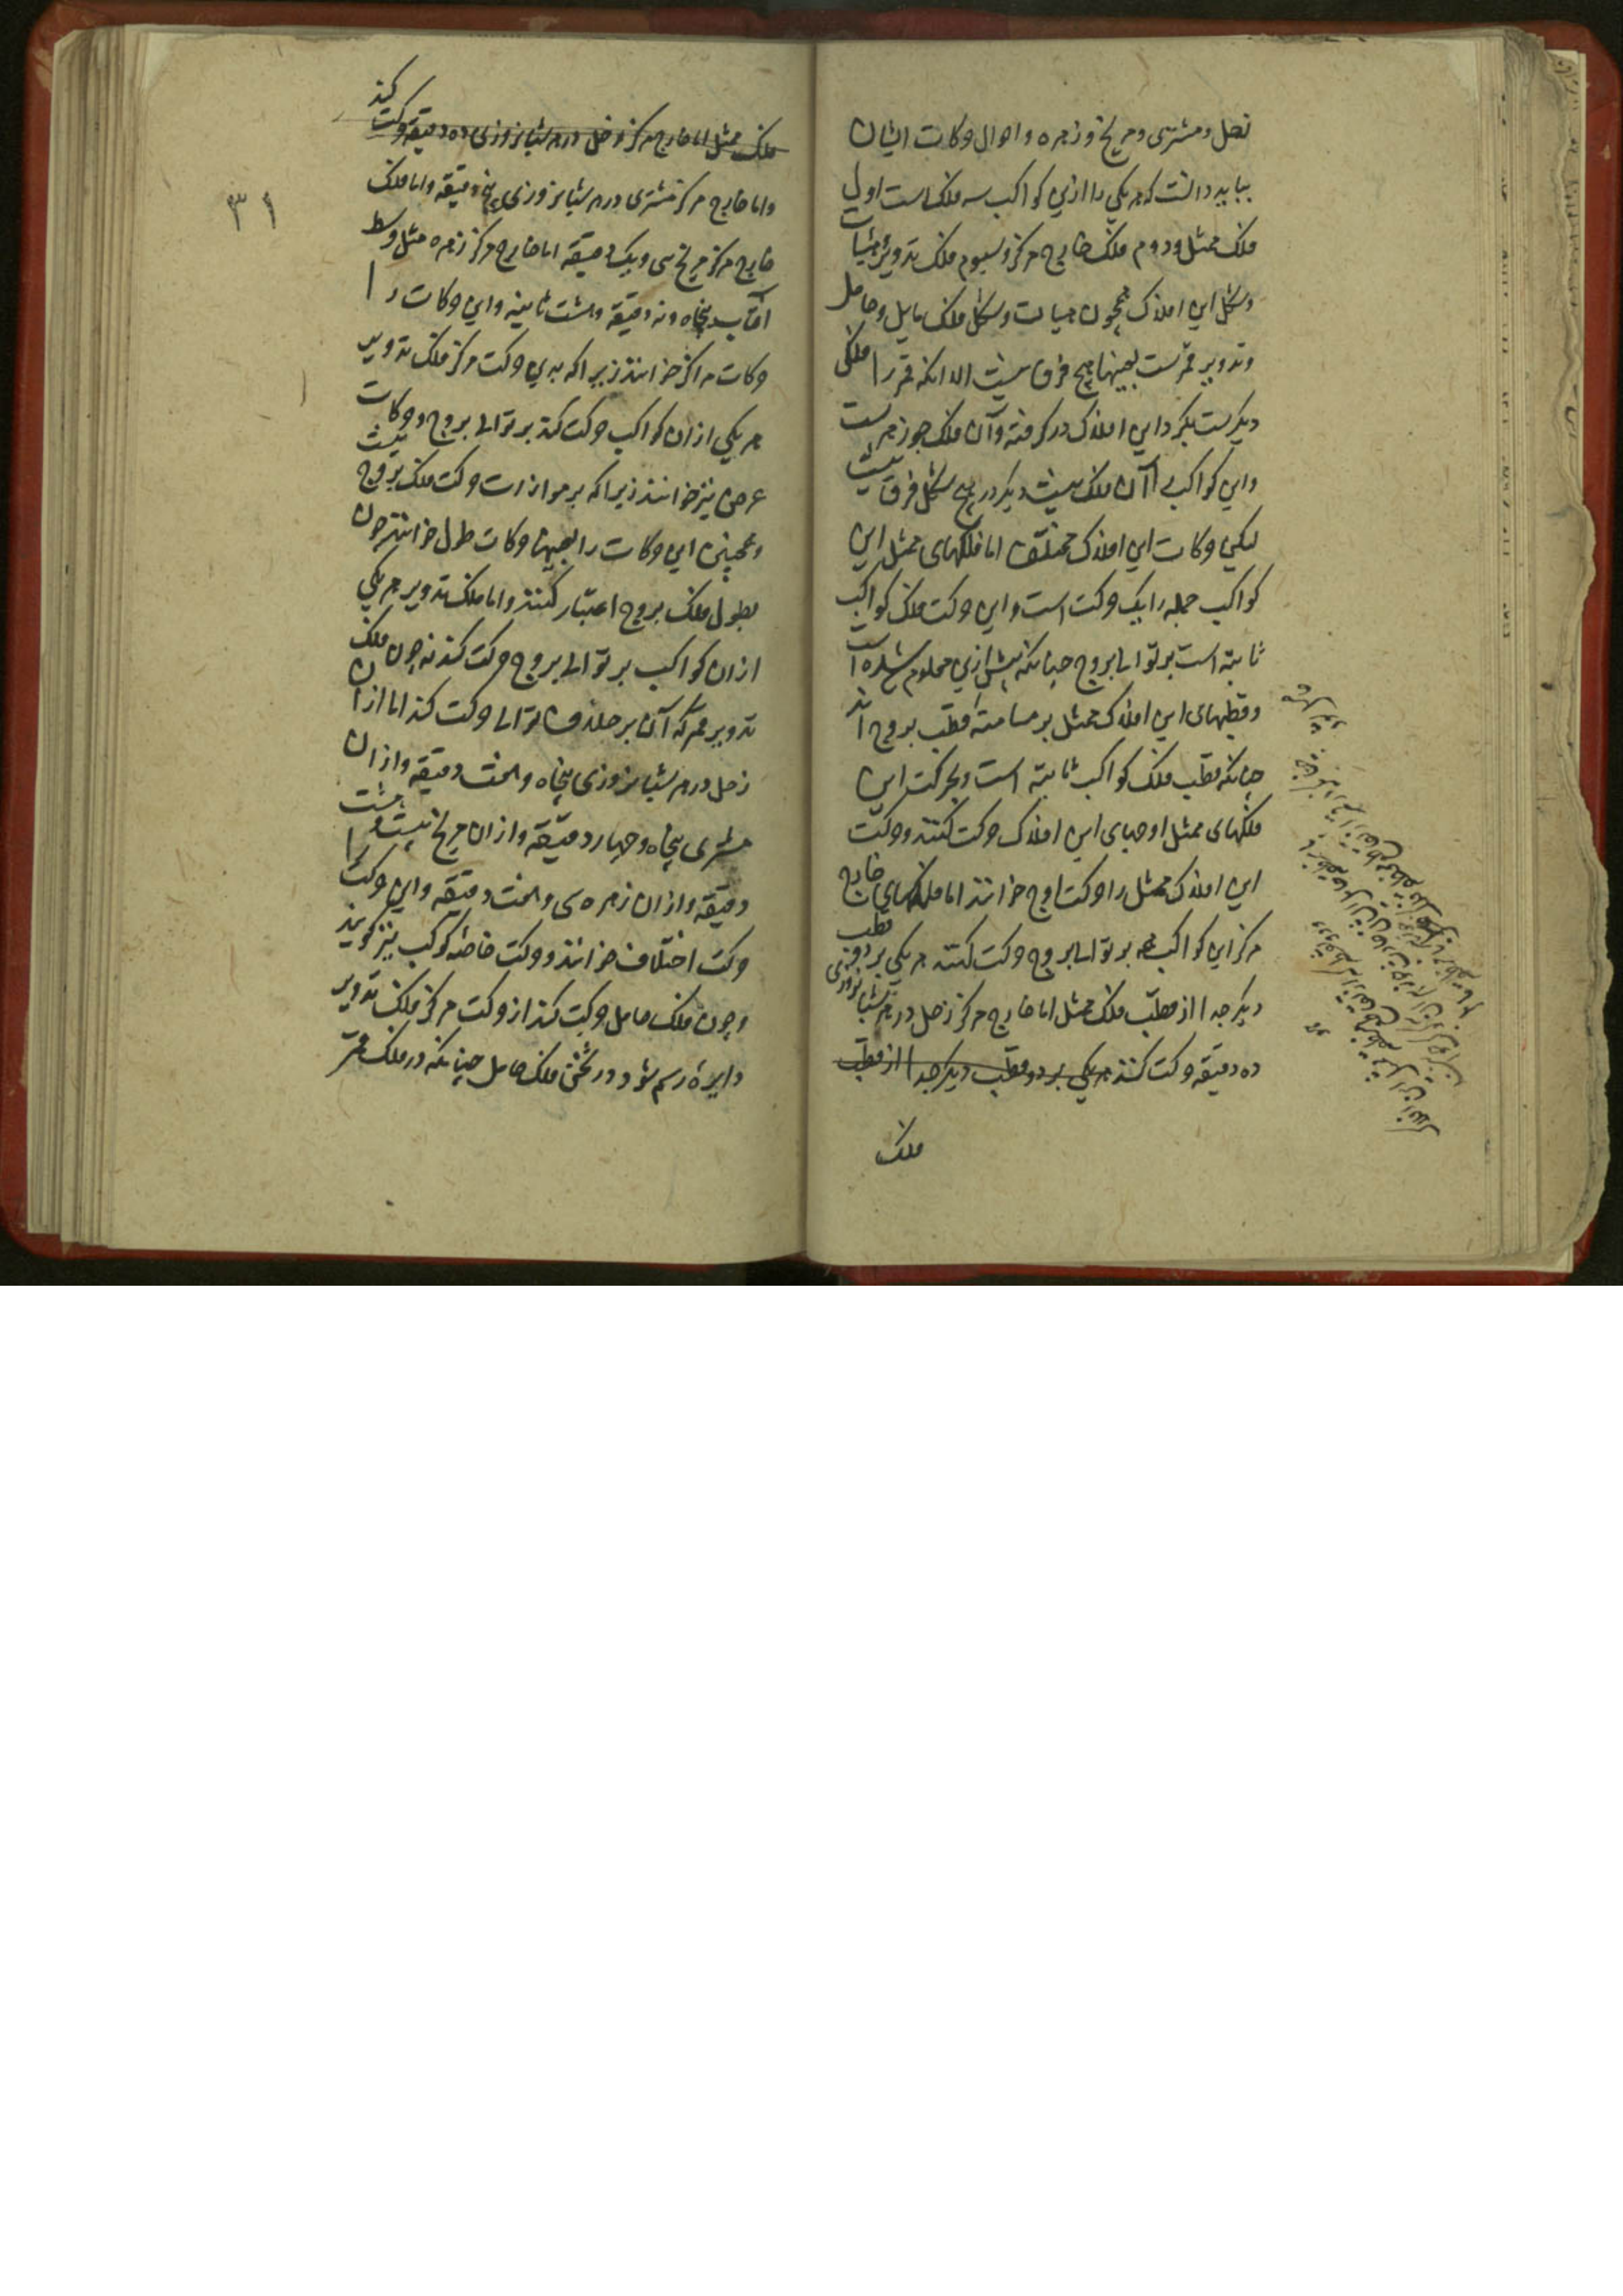 زحل و مشتری و مریخ و زهره و احوال حرکات ایشان
بباید دانست که هر یکی را ازین کواکب سه فلک است اول
فلک ممثل و دوم فلک خارج مرکز و سیوم فلک تدویر و هیات
و شکل این افلاک همچون هیات و شکل فلک مایل و حامل
و تدویر قمرست بعینها هیچ فرق نیست الا آنکه قمر را فلکی
دیگرست بگرد این افلاک در گرفته و آن فلک جوزهرست
و این کواکب را آن فلک نیست دیگر در هیچ شکل فرق نیست
لیکن حرکات این افلاک مختلف اما فلکهای ممثل این
کواکب جمله را یک حرکت است و این حرکت فلک کواکب
ثابته است بر توالی بروج چنانکه پیش ازین معلوم شده است
و قطبهای این افلاک ممثل بر مسامته قطب بروج اند
چنانکه قطب فلک کواکب ثابته است و بحرکت این
فلکهای ممثل اوجهای این افلاک حرکت کنند و حرکت
این افلاک ممثل را حرکت اوج خوانند اما فلکهای خارج
مرکز این کواکب بر توالی بروج حرکت کنند هر یکی بر دو قطب
دیگر جدا از قطب فلک ممثل اما خارج مرکز زحل در هر شبانروزی
ده دقیقه حرکت کنند هر یکی بر دو قطب دیگر جدا از قطب
فلک
۳۱
فلک ممثل اما خارج مرکز زحل در هر شبانروزی ده دقیقه حرکت کند
و اما خارج مرکز مشتری در هر شبانروزی پنج دقیقه و اما فلک
خارج مرکز مریخ سی و یک دقیقه اما خارج مرکز زهره مثل وسط
آفتاب پنجاه و نه دقیقه و هشت ثانیه و این حرکات را
حرکات مراکز خوانند زیرا که بدین حرکت مرکز فلک تدویر
هر یکی ازان کواکب حرکت کند بر توالی بروج و حرکات
عرض نیز خوانند زیرا که بر موازات حرکت فلک بروج نیست
و همچنین این حرکات را بعینها حرکات طول خوانند چون
بطول فلک بروج اعتبار کنند و اما فلک تدویر هر یکی
ازان کواکب بر توالی بروج حرکت کند نه چون فلک
تدویر قمر که آن بر خلاف توالی حرکت کند اما ازان
زحل در هر شبانروزی پنجاه و هفت دقیقه و ازان
مشتری پنجاه و چهار دقیقه و ازان مریخ بیست و هشت
دقیقه و ازان زهره سی و هفت دقیقه و این حرکت را
حرکت اختلاف خوانند و حرکت خاصه کوکب نیز گویند
و چون فلک حامل حرکت کند از حرکت مرکز فلک تدویر
دایره رسم شود در ثخن فلک حامل چنانکه در فلک قمر